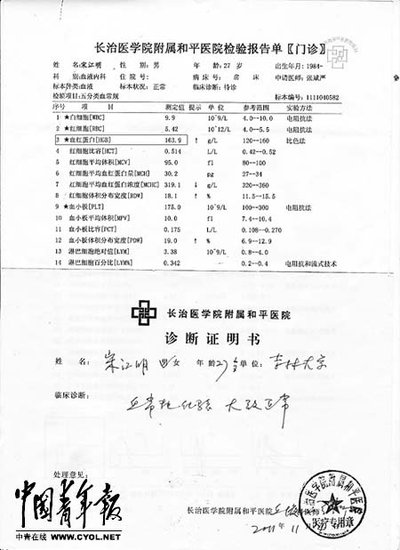 长治医学院附属和平医院检验报告单〖门诊〗
姓 名:宋江明 性 别:男 年 龄:27 岁 出生年月:1984-
科 别:血液内科 住院号: 病床号: 床 申请医师:张斌
标本种类:血液 标本状态:正常 临床诊断:待诊
检验项目:五分类血常规 标本编号:1111040582
序号 项 目 测定值 提示 单位 参考范围 实验方法
1 ★白细胞[WBC] 9.9 10^9/L 4.0--10.0 电阻抗法
2 ★红细胞[RBC] 5.42 10^12/L 4.0--5.5 电阻抗法
3 ★血红蛋白[HGB] 163.9 ↑ g/L 120--160 比色法
4 红细胞比容[HCT] 0.514 L/L 0.42--0.52
5 红细胞平均体积[MCV] 95.0 fl 80--100
6 红细胞平均血红蛋白量[MCH] 30.2 pg 27--34
7 红细胞平均血红蛋白浓度[MCHC] 319.1 ↓ g/L 320--360
8 红细胞体积分布宽度[RDW] 18.1 ↑ % 11.5--15.5
9 ★血小板[PLT] 175.0 10^9/L 100--300 电阻抗法
10 血小板平均体积[MPV] 10.0 fl 7.4--10.4
11 血小板比容[PCT] 0.175 L/L 0.108--0.270
12 血小板体积分布宽度[PDW] 19.0 ↑ % 6.9--12.9
13 淋巴细胞绝对值[LYM] 3.38 10^9/L 0.8--4.0
14 淋巴细胞百分比[LYM%] 0.342 0.2--0.4 电阻抗和流式技术
长治医学院附属和平医院
诊断证明书
姓 名: 宋江明 男女 年龄 27岁 单位: 吉林大学
临床诊断:
血常规化验 大致正常
处理意见:
长治医学院附属和平医院
2011 11
长治医学院附属和平医院
医疗专用章
中国青年报
中青在线 WWW.CYOL.NET